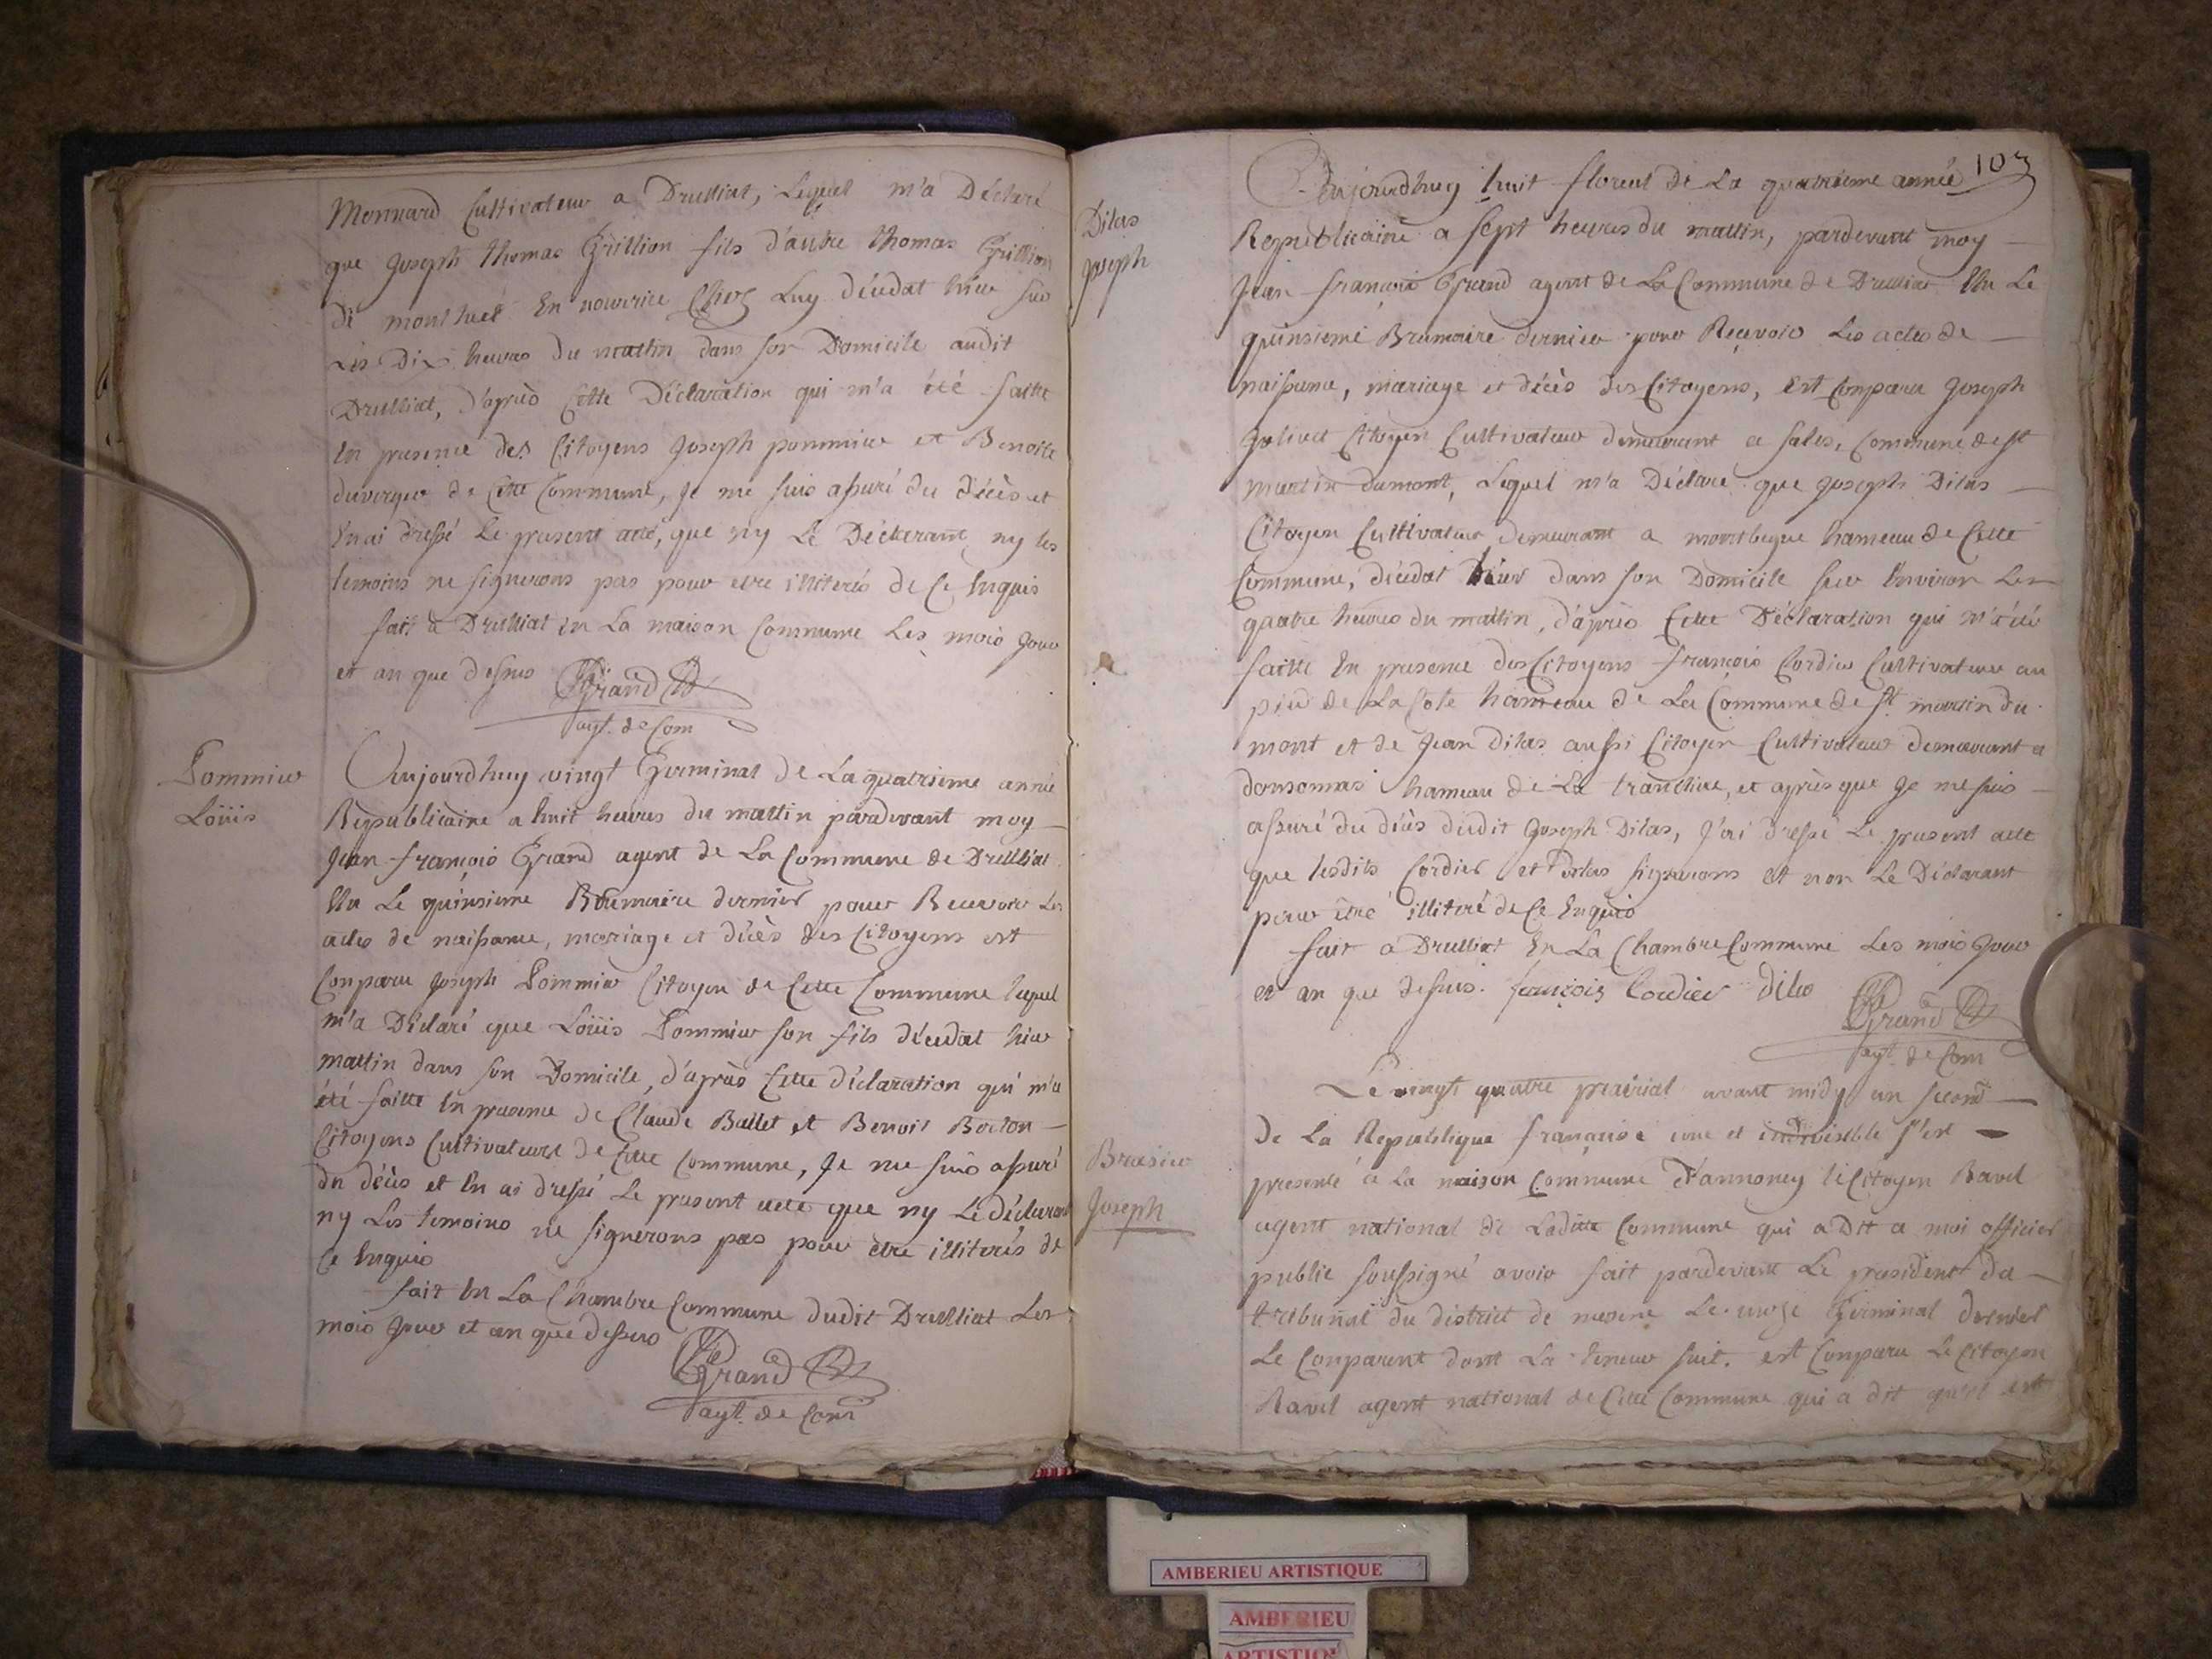 Monnard Cultivateur a Drulliat, Lequel m'a Déclaré
que Joseph thomas Grillion fils d'autre thomas Grillion
de montluel En nourrice Chez Luy décédat hier sur
Les Dix heures du mattin dans son Domicile audit
Drulliat, d'après Cette Déclaration qui m'a été faitte
En presence des Citoyens Joseph pommier et Benoite
duverger de Cette Commune, Je me suis assuré du décès et
En ai dressé Le present acte, que ny Le Déclarant, ny les
temoins ne signerons pas pour etre illiterés de Ce Enquis
fait a Drulliat En La maison Commune Les mois Jour
et an que dessus Grand
agt. de Com
Pommier
Loüis
Aujourdhuy vingt Germinal de La quatrieme année
Republicaine a huit heures du mattin pardevant moy
Jean françois Grand agent de La Commune de Drulliat
Elu Le quinsieme Brumaire dernier pour Recevoir Les
actes de naissance, mariage et décès des Citoyens est
Conparu Joseph Pommier Citoyen de Cette Commune lequel
m'a Déclaré que Loüis Pommier son fils décedat hier
mattin dans son Domicile, d'après Cette déclaration qui m'a
été faitte En presence de Claude Ballet et Benoit Borton
Citoyens Cultivateurs de Cette Commune, Je me suis assuré
du décès et En ai dressé Le present acte que ny Le déclarant
ny Les temoins ne signerons pas pour être illiterés de
Ce Enquis
fait En La Chambre Commune dudit Drulliat Les
mois Jour et an que dessus
Grand
agt. de Com
103
Dilas
Joseph
Aujourdhuy huit floreal de La quatrieme année
Republicaine a sept heures du mattin, pardevant moy
Jean françois Grand agent de La Commune de Drulliat Elu Le
quinsieme Brumaire dernier pour Reçevoir Les actes de
naissance, mariage et décès des Citoyens, est Conparu Joseph
Jolivet Citoyen Cultivateur demeurant a Sales, Commune de st
martin dumont, Lequel m'a Déclaré que Joseph Dilas
Citoyen Cultivateur demeurant a montbegue hameau de Cette
Commune, décedat hier dans son Domicile sur Environ Les
quatre heures du mattin, d'après Cette Déclaration qui m'a été
faitte En presence des Citoyens françois Cordier Cultivateur au
pied de La Cote hameau de La Commune de st martin du
mont et de Jean dilas aussi Citoyen Cultivateur demeurant a
donsonnas hameau de La tranclière, et après que Je me suis
assuré du décès dudit Joseph Dilas, J'ai dressé Le present acte
que lesdits Cordier et Dilas signerons et non Le Déclarant
pour être illiteré de Ce Enquis
fait a Drulliat En La Chambre Commune Les mois Jour
et an que dessus. françois Cordier dilas
Grand
agt. de Com
Brasier
Joseph
Le vingt quatre prairial avant midy an second
de La Republique française une et indivisible s'est
presenté a La maison Commune d'annoney le Citoyen Ravel
agent national de Laditte Commune qui a Dit a moi officier
public soussigné avoir fait pardevant Le president du
tribunal du district de mesene Le onze Germinal dernier
Le Conparent dont La teneur suit. est Conparu Le Citoyen
Ravel agent national de Cette Commune qui a dit qu'il est
AMBERIEU ARTISTIQUE
AMBERIEU
ARTISTIQUE